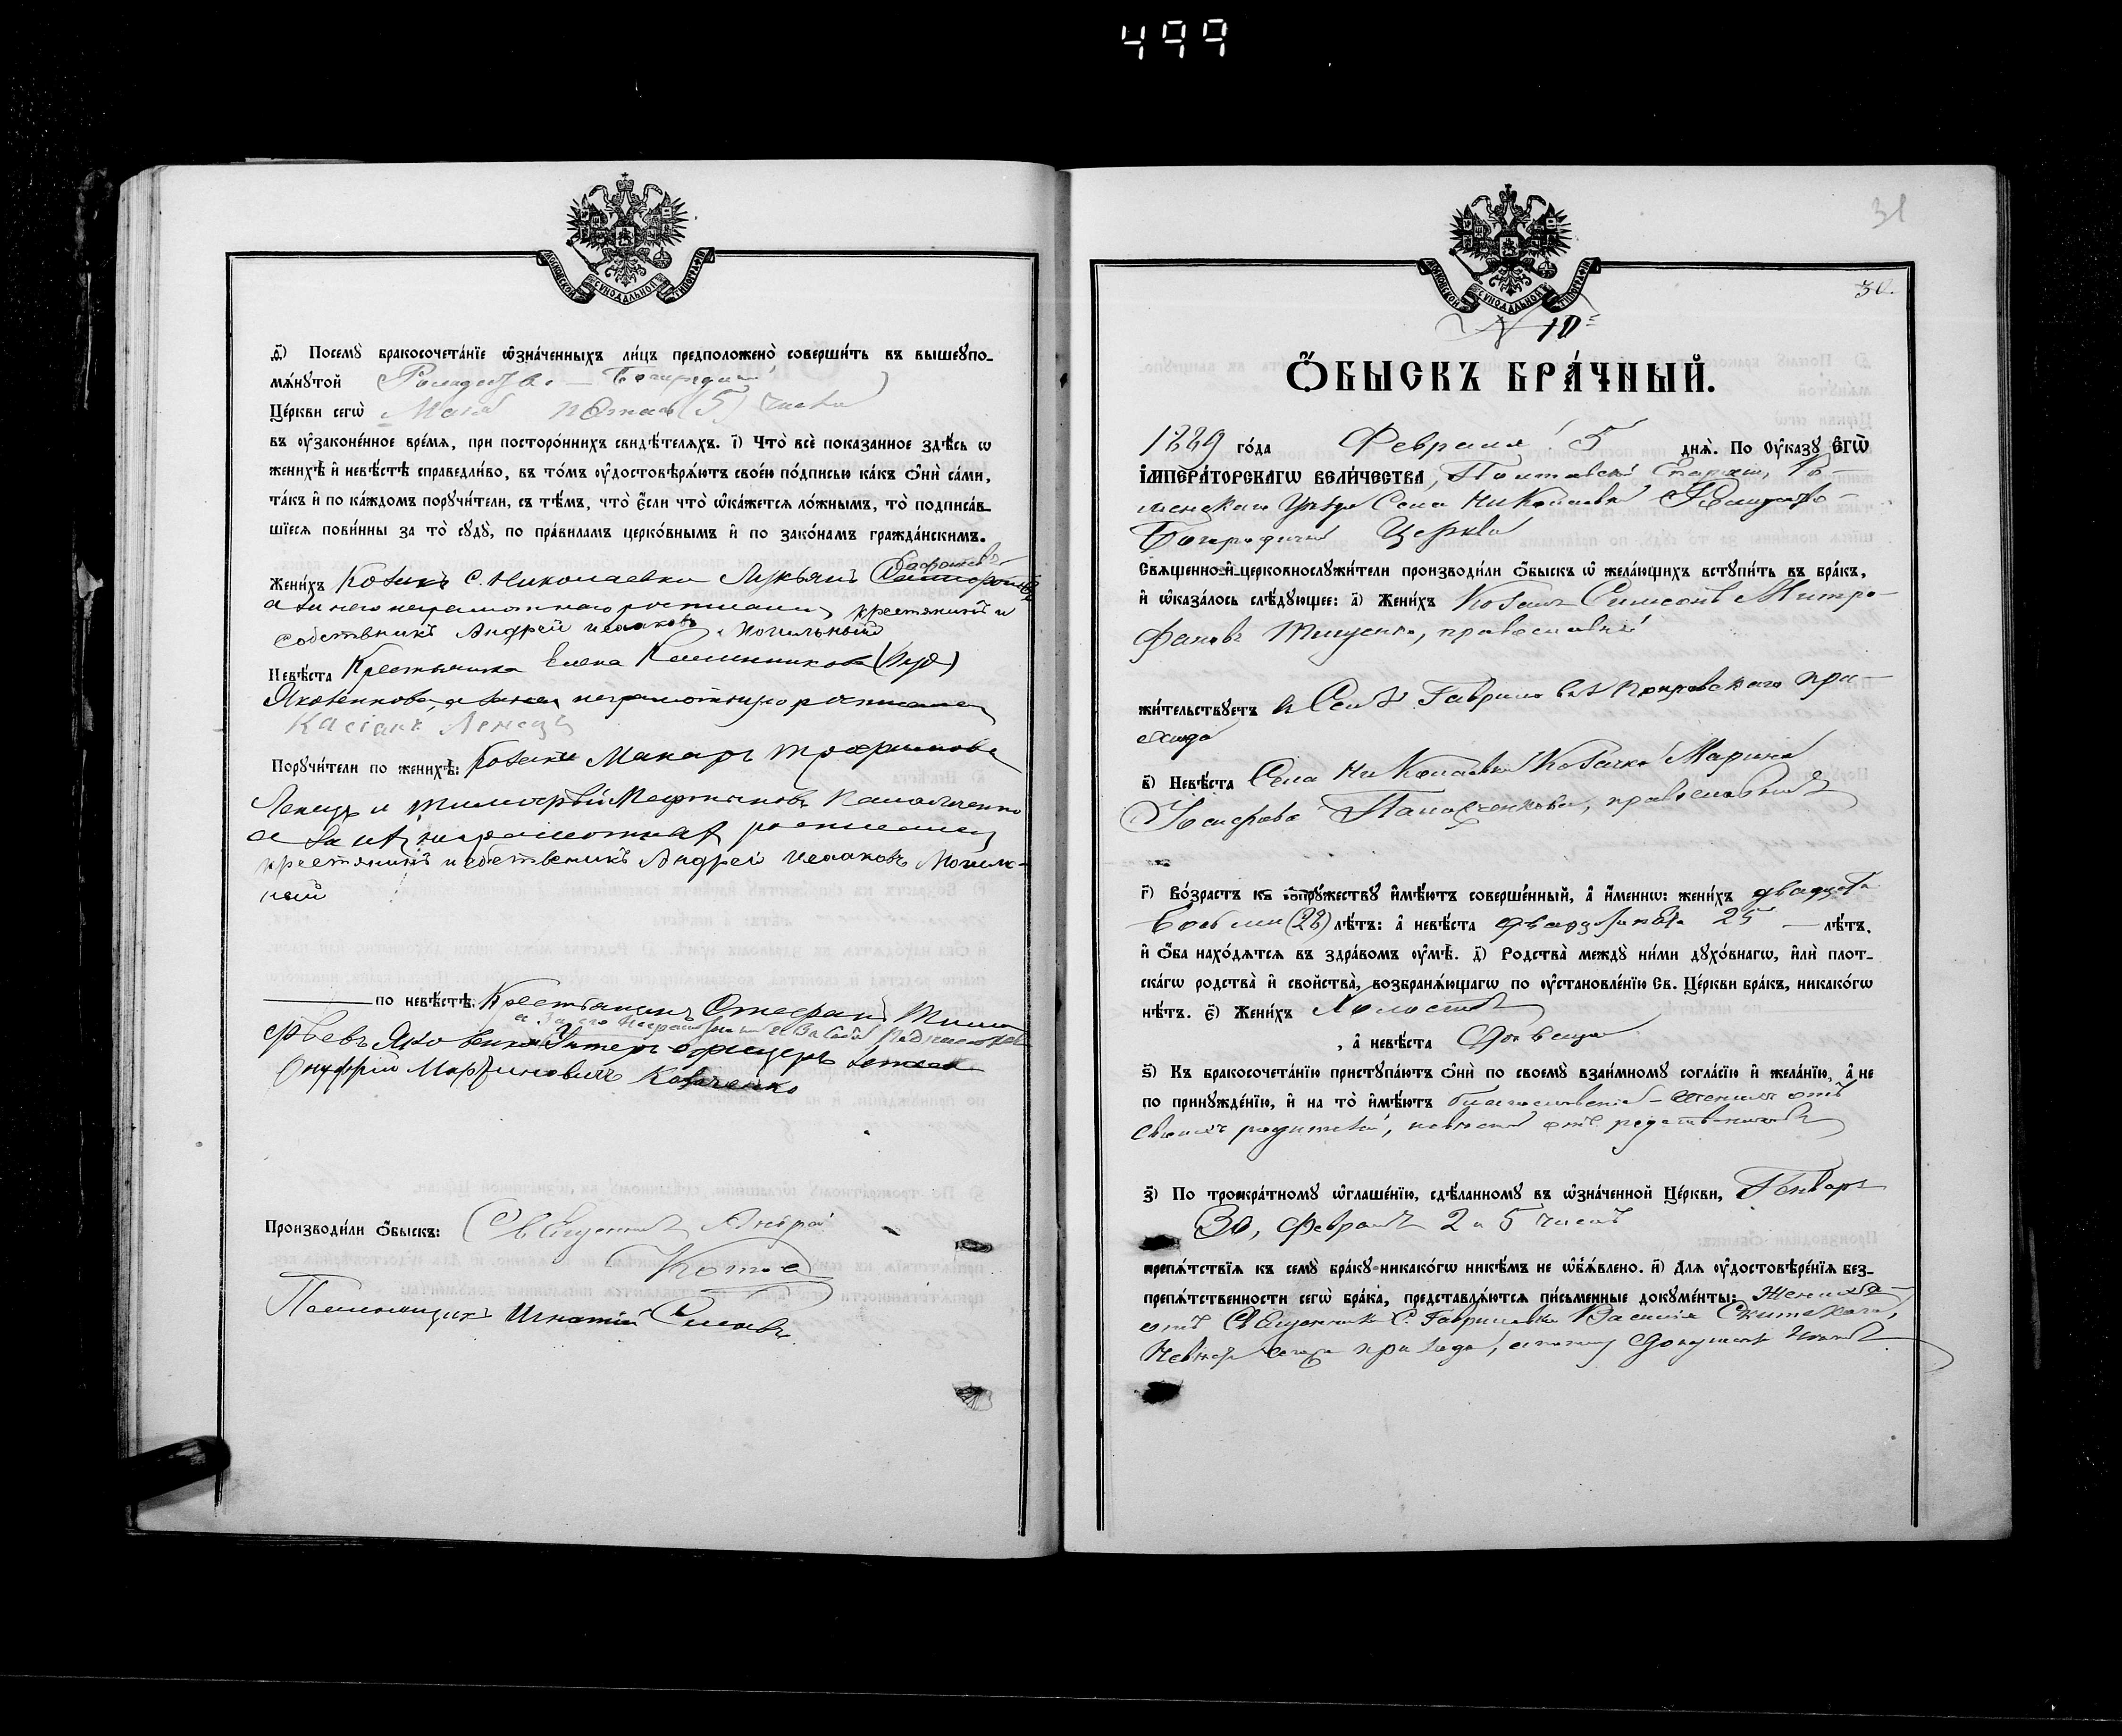 499
МОСКОВСКОЙ СѴНОДАЛЬНОЙ ТИПОГРАФІИ
Ѳ҃) Посемꙋ̀ бракосочета́нїе ѡ҆зна́ченныхъ ли́цъ предположено̀ соверши́ть въ вышеꙋпо-
мѧ́нꙋтой Рождество - Богородичной
Це́ркви сегѡ̀ (5) числа
въ ᲂу҆зако́ненное вре́мѧ, при посторо́ннихъ свидѣ́телѧхъ. і҃) Что̀ всѐ пока́занное здѣ́сь ѡ
женихѣ̀ и҆ невѣ́стѣ справедли́во, въ то́мъ ᲂу҆достовѣрѧ́ютъ свое́ю по́дписью ка́къ ѻ҆нѝ са́ми,
та́къ и҆ по ка́ждомъ порꙋчи́тели, съ тѣ́мъ, что̀ є҆́сли что̀ ѡ҆ка́жетсѧ ло́жнымъ, то̀ подписа́в-
шїесѧ пови́нны за то̀ сꙋдꙋ̀, по пра́виламъ церко́внымъ и҆ по зако́намъ гражда́нскимъ.
Жени́хъ Козакъ с. Николаевки Лукьянъ
а за него неграмотнаго росписался крестянинъ и
собственикъ Андрей Исааковъ Могильный
Невѣ́ста Крестьянка Елена
Яковенкова, а за нея неграмотную росписался
Касіанъ Ленецъ
Порꙋчи́тели по женихѣ̀: Козаки Макаръ Трофимовъ
Ленецъ и
а за ихъ неграмотныхъ росписался
крестянинъ и собственикъ Андрей Исааковъ Могиль-
ный
по невѣ́стѣ: Крестьянинъ Стефанъ Тимо
фѣевъ Яковенко Унтеръ офицеръ
Онуфрій Мартиновичъ
Производи́ли ѻ҆́быскъ: Священникъ Андрей
Игнатій
31
30.
МОСКОВСКОЙ СѴНОДАЛЬНОЙ ТИПОГРАФІИ
№ 10
Ѻ҆́БЫСКЪ БРА́ЧНЫЙ.
1889 го́да Февраля 5 днѧ̀. По ᲂу҆ка́зꙋ Є҆ГѠ̀
І҆МПЕРА́ТОРСКАГѠ ВЕЛИ́ЧЕСТВА, Полтавской Епархіи, Ро-
менскаго Уѣзда Села Николаевки Рождество-
Богородичной Церкви
Свѧще́нно-и҆-церковнослꙋжи́тели производи́ли ѻ҆́быскъ ѡ҆ жела́ющихъ встꙋпи́ть въ бра́къ,
и҆ ѡ҆каза́лось слѣ́дꙋющее: а҃) Жени́хъ Козакъ Симеонъ Митро-
фановъ Тищенко, православный
жи́тельствꙋетъ в Селѣ Гавриловкѣ Покровскаго при-
хода
в҃) Невѣ́ста Села Николаевки Козачка Марина
Іосифова православная
г҃) Во́зрастъ къ сопрꙋ́жествꙋ и҆мѣ́ютъ соверше́нный, а҆ и҆́меннѡ: жени́хъ двадцать
восьми (28) лѣ́тъ: а҆ невѣ́ста двадцать пять 25 — лѣ́тъ.
и҆ ѻ҆́ба нахо́дѧтсѧ въ здра́вомъ ᲂу҆мѣ̀. д҃) Родства̀ междꙋ̀ ни́ми дꙋхо́внагѡ, и҆лѝ плот-
ска́гѡ родства̀ и҆ свойства̀, возбранѧ́ющагѡ по ᲂу҆становле́нїю Св. Це́ркви бра́къ, никако́гѡ
нѣ́тъ. є҃) Жени́хъ Холостъ
, а҆ невѣ́ста Дѣвица
ѕ҃) Къ бракосочета́нїю пристꙋпа́ютъ ѻ҆нѝ по своемꙋ̀ взаи́мномꙋ согла́сїю и҆ жела́нїю, а҆ не
по принꙋжде́нїю, и҆ на то̀ и҆мѣ́ютъ благословеніе - женихъ отъ
своихъ родителей, невѣста отъ родственниковъ
з҃) По троекра́тномꙋ ѡ҆глаше́нїю, сдѣ́ланномꙋ въ ѡ҆зна́ченной Це́ркви, Генваря
30, Февраля 2 и 5 чиселъ
препѧ́тствїѧ къ семꙋ̀ бра́кꙋ никако́гѡ никѣ́мъ не ѡ҆б̾ѧ́влено. и҃) Длѧ ᲂу҆достовѣре́нїѧ без-
препѧ́тственности сегѡ̀ бра́ка, представлѧ́ютсѧ пи́сьменные докꙋме́нты: Жениха
отъ Священника С. Гавриловки Василія
Невѣста сего прихода,